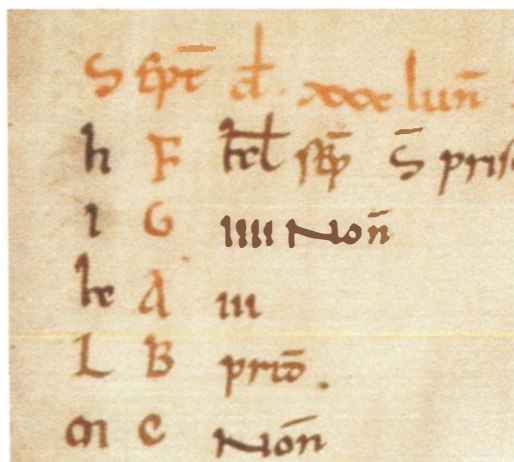 Sept d. xxx lun
h F kł sep S pris
i G iiii Non
k A iii
L B prid.
m C Non